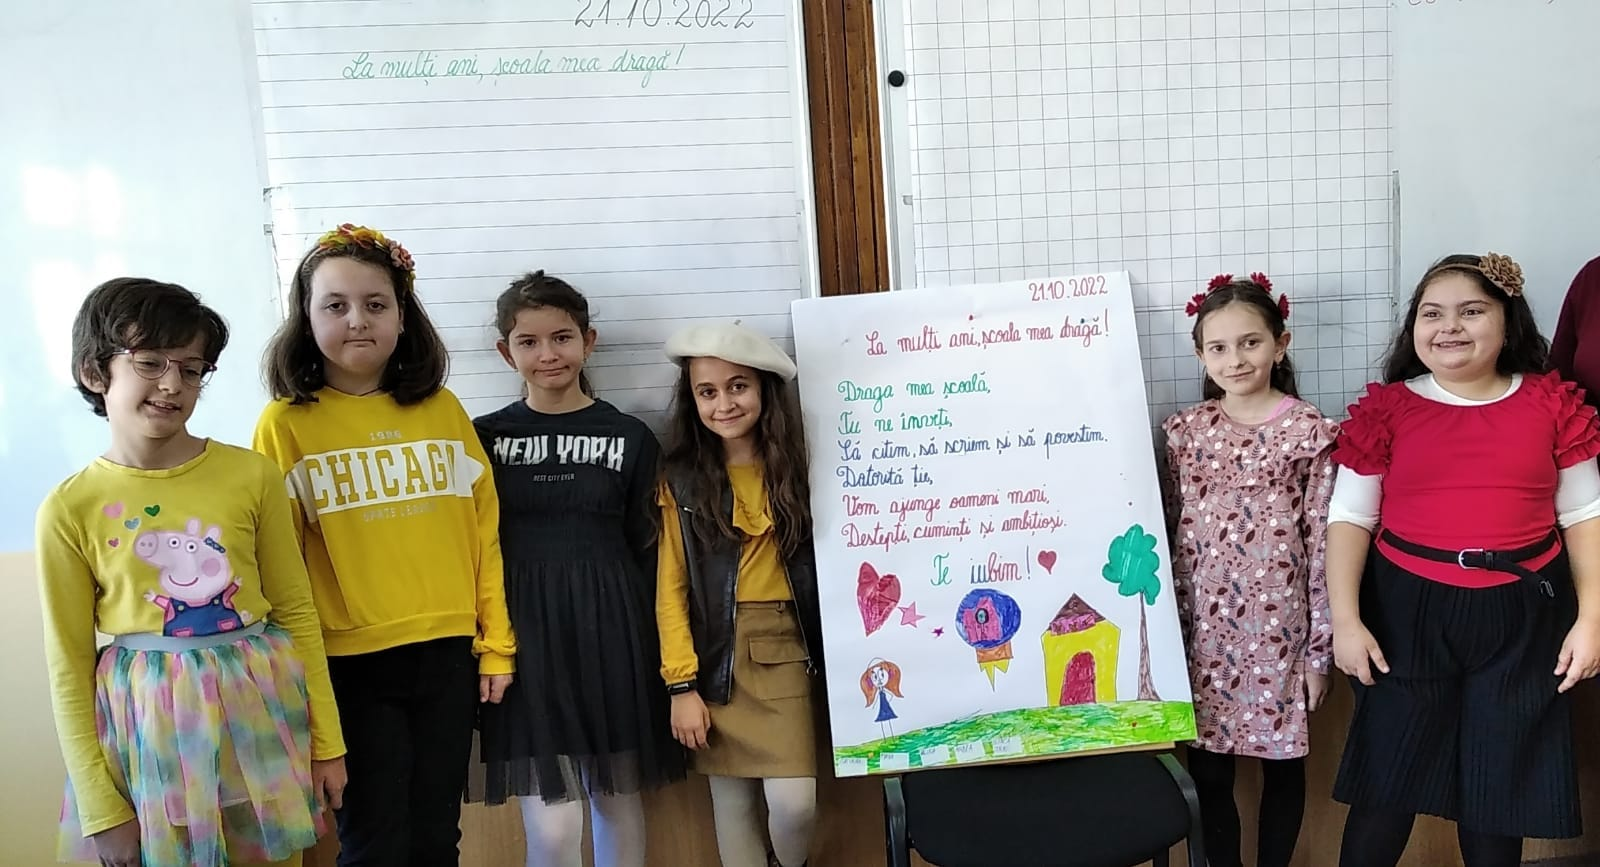 21.10.2022
La mulți ani, școala mea dragă!
1986
CHICAGO
NEW YORK
BEST CITY EVER
21.10.2022
La mulți ani, școala mea dragă!
Draga mea școală,
Tu ne înveți,
Să citim, să scriem și să povestim.
Datorită ție,
Vom ajunge oameni mari,
Destepți, cuminți și ambițioși.
Te iubim!